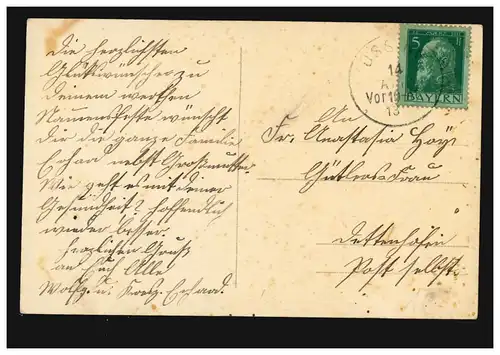 Die herzlichsten
Glückwünsche zu
Deinem werthen
Namensfeste wünscht
Dir die ganze Familie
Erhard nebst Großmutter.
Wie geht es mit deiner
Gesundheit? Hoffentlich
wieder besser.
Herzlichen Gruß
an Euch Alle
Wolfg. u. Kresz. Erhard.
14
Vor
13
5
BAYERN
An
Fr. Anastasia
Gütlers-Frau
Dettenhofen
Post selbst.